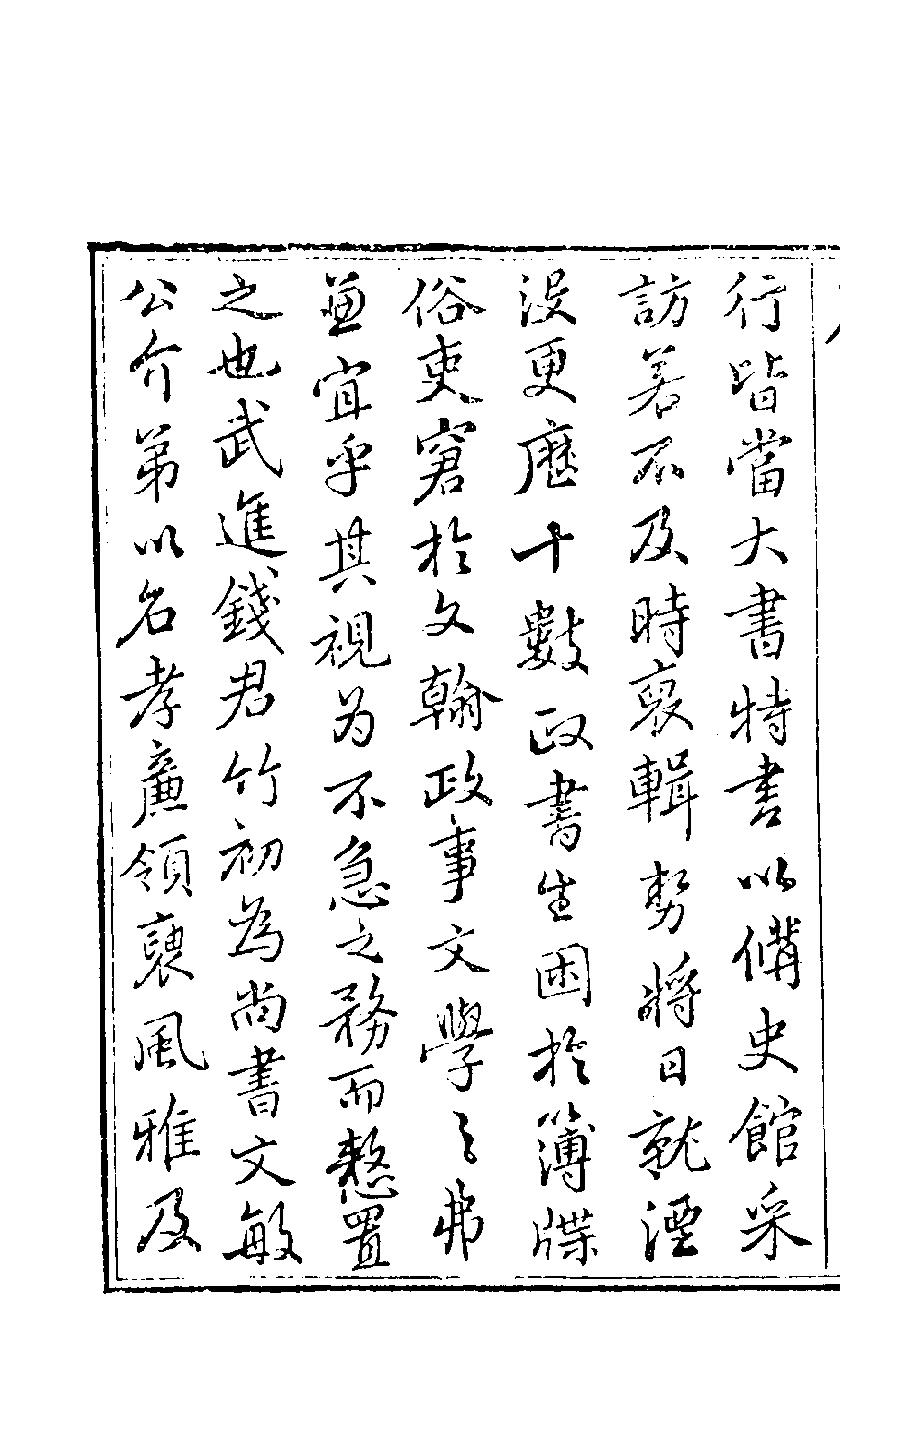 行皆當大書特書以備史館采
訪若不及時裒輯勢將日就湮
沒更歷十數政書生困於簿牒
俗吏窘於文翰政事文學之弗
兼宜乎其視为不急之務而愸置
之也武進錢君竹初為尚書文敏
公介弟以名孝廉領袌風雅及